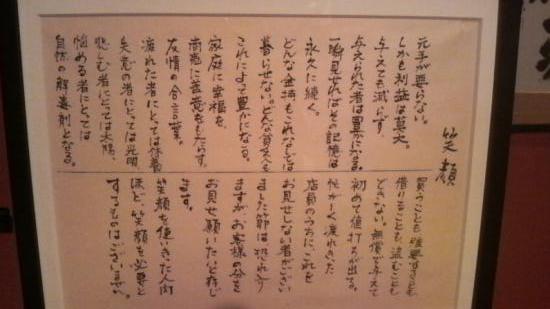 笑顔
元手が要らない。
しかも利益は莫大。
与えても減らず、
与えられた者は豊かになる。
一瞬見せればその記憶は
永久に続く。
どんな金持もこれなしでは
暮らせない。どんな貧乏人も
これによって豊かになる。
家庭に幸福を、
商売に善意をもたらす。
友情の合言葉。
疲れた者にとっては休養
失意の者にとっては光明
悲しむ者にとっては太陽、
悩める者にとっては
自然の解毒剤となる。
買うことも 強要することも
借りることも、盗むことも
できない 無償で与えて
初めて値打ちが出る。
忙がしく疲れきった
店員のうちに、これを
お見せしない者がござい
ました節は、恐れ入り
ますが、お客様の分を
お見せ願いたいと存じ
ます。
笑顔を使いきった人間
ほど、笑顔を必要と
するものはございません。